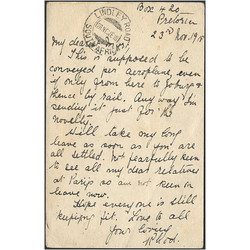 Box 420
Pretoria
23rd Nov. 1918
LINDLEY ROAD
SOUTH AFRICA
My dear
This is supposed to be
conveyed per aeroplane, even if
only from here to Joburg &
thence by rail. Any way I'm
sending it just for the
novelty.
Will take my long
leave as soon as you are
all settled. Not fearfully keen
to see all my dear relatives
at Parys so am not keen on
leave now.
Hope everyone is still
keeping fit. Love to all
Your loving